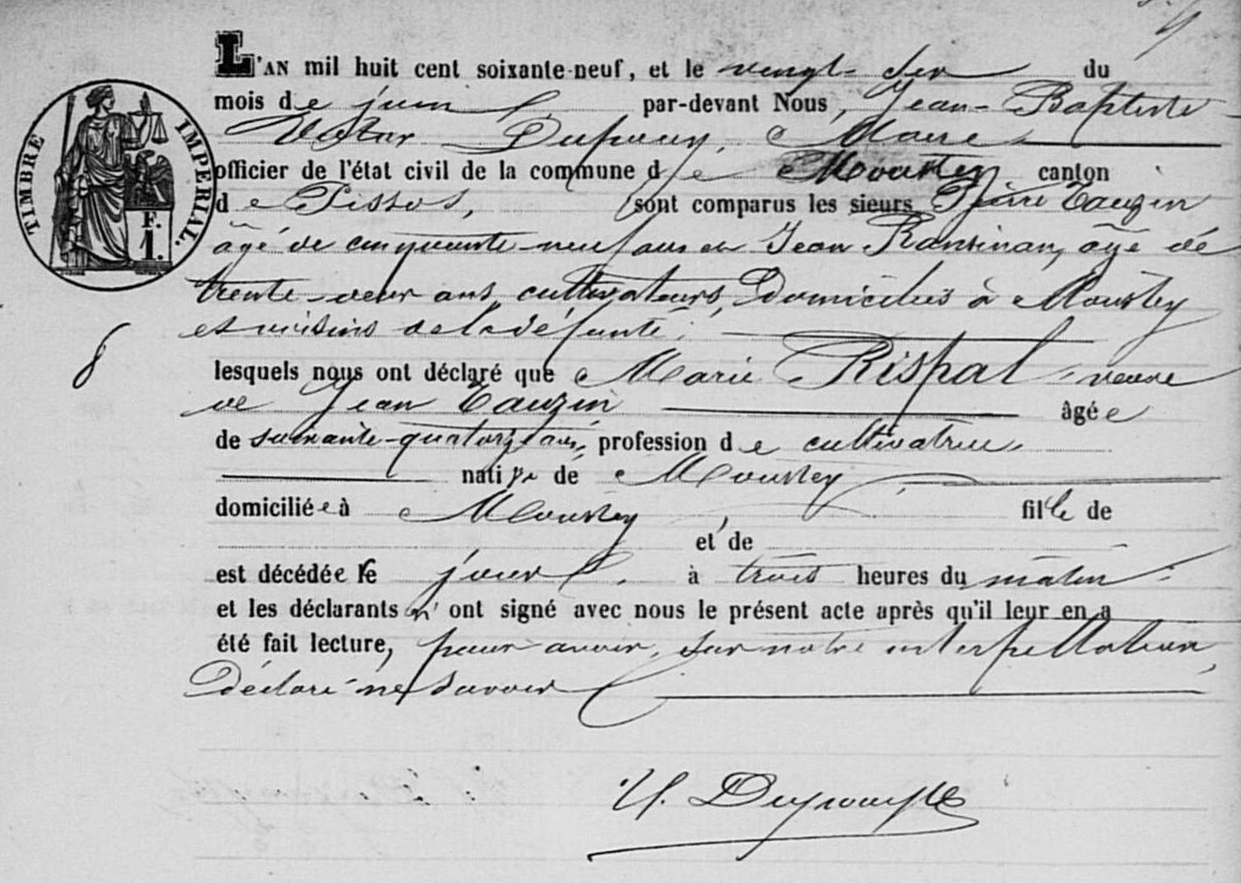 L'AN mil huit cent soixante-neuf, et le vingt-six du
mois de juin par-devant Nous, Jean-Baptiste
Victor Dupouy, Maire
officier de l'état civil de la commune de Moustey canton
de Pissos, sont comparus les sieurs Pierre Tauzin
âgé de cinquante-neuf ans et Jean âgé de
trente-deux ans, cultivateurs, domiciliés à Moustey
et voisins de la défunte;
8
lesquels nous ont déclaré que Marie Rispal, veuve
de Jean Tauzin âgée
de soixante-quatorze ans, profession de cultivatrice,
native de Moustey
domiciliée à Moustey, fille de
et de
est décédée le jour à trois heures du matin;
et les déclarants n'ont signé avec nous le présent acte après qu'il leur en a
été fait lecture, pour avoir, sur notre interpellation,
déclaré ne savoir
V. Dupouy
TIMBRE IMPERIAL.
F.
1.